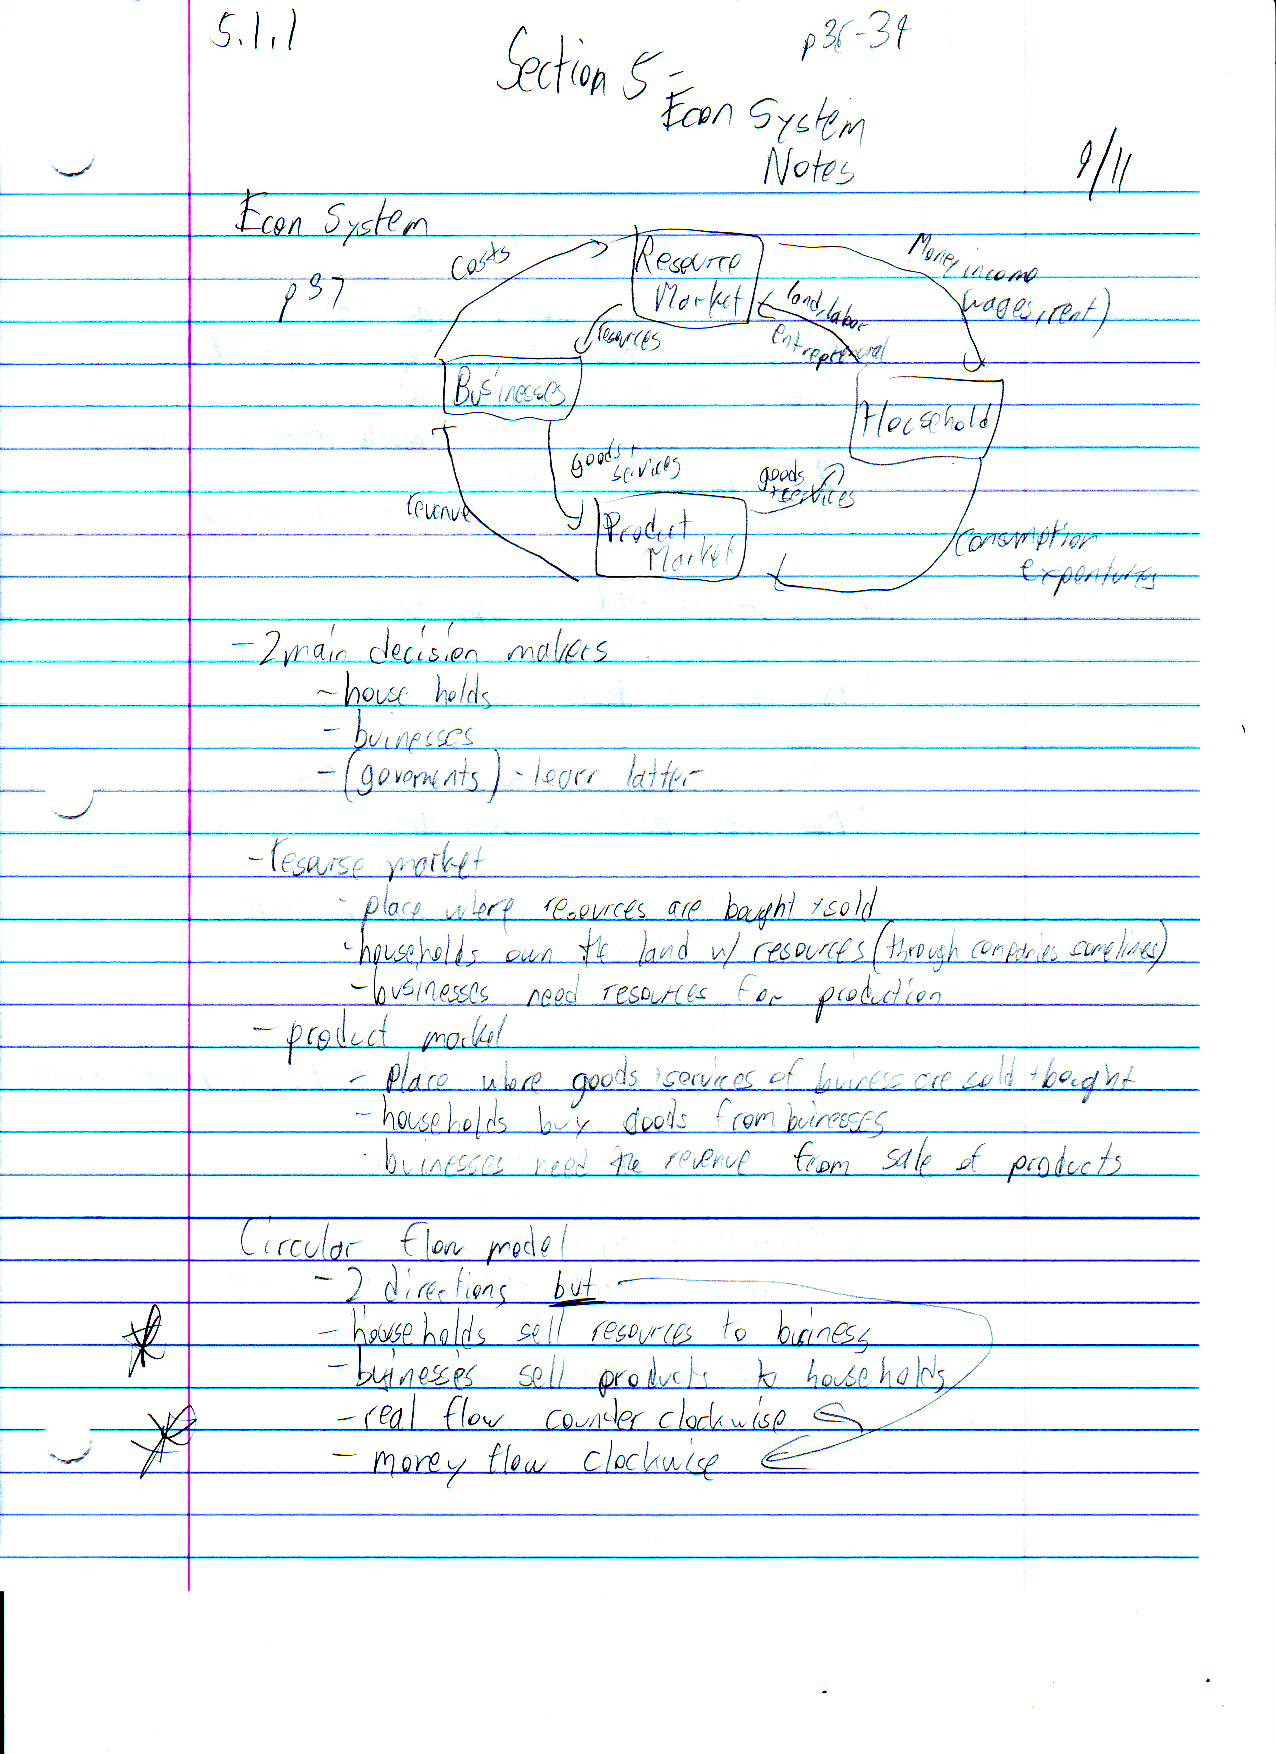 5.1.1
p36-39
Section 5 -
Econ System
Notes
9/11
Econ System
p 37
Costs
Resource
Market
Money income
(wages, rent)
land, labor
entreprenural
resources
Businesses
Household
goods +
services
goods
+ services
revenue
Product
Market
Consumption
expentures
- 2 main decision makers
- house holds
- buinesses
- (goverments) - learn latter
- resourse market
- place where resources are bought + sold
- households own the land w/ resources (through companies sometimes)
- businesses need resources for production
- product market
- Place where goods + services of buiness are sold + bought
- households buy goods from buinesses
- buinesses need the revenue from sale of products
Circular flow model
- 2 directions but
- households sell resources to business
- buinesses sell products to households
- real flow counder clockwise
- money flow clockwise